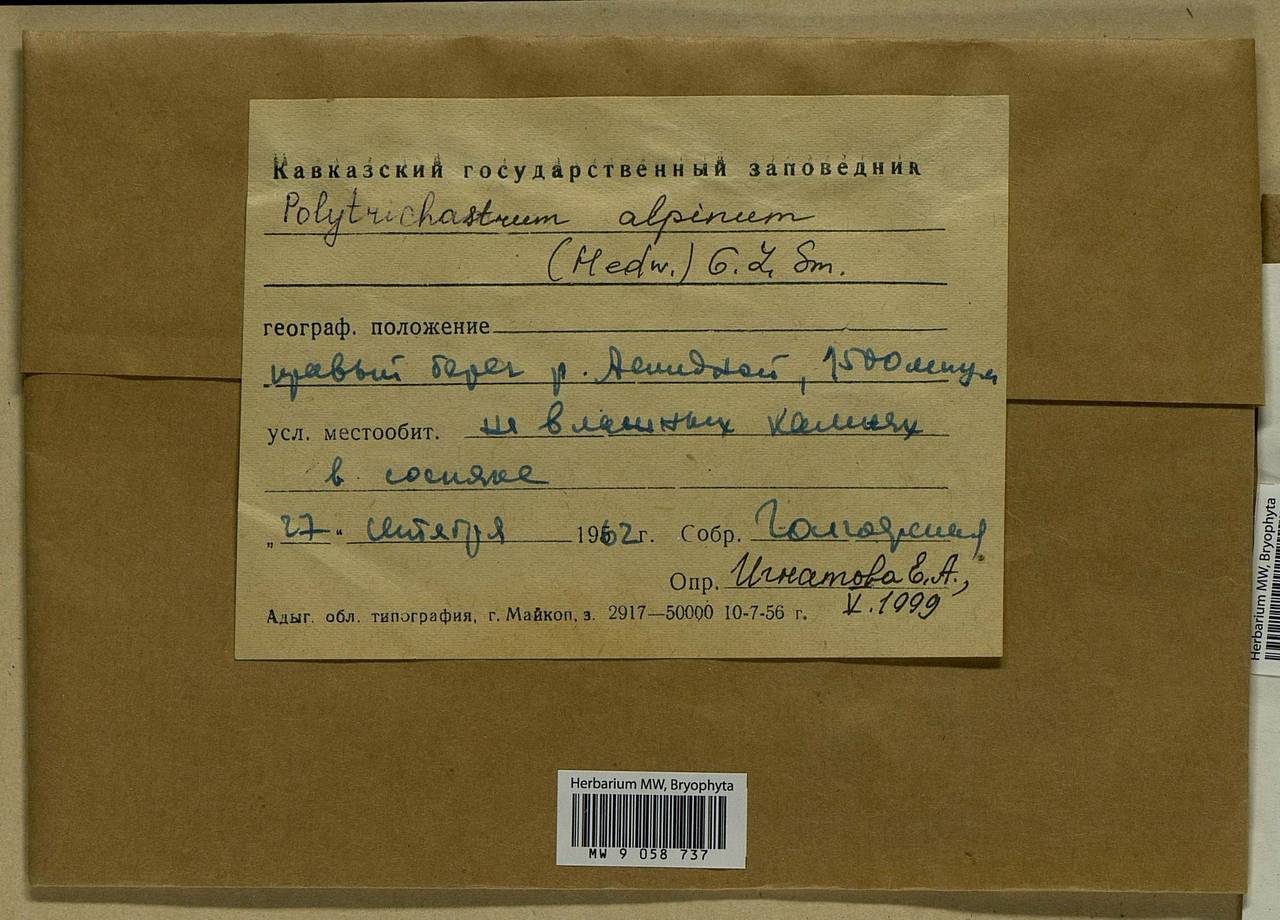 Кавказский государственный заповедник
Polytrichastrum alpinum
(Hedw.) G.L. Sm.
географ. положение
правый берег р. 1500 м н ум
усл. местообит. на влажных камнях
в сосняке
„27“ сентября 1962 г. Собр.
Опр. Игнатова Е.А.,
V.1999
Адыг. обл. типография, г. Майкоп, з. 2917—50000 10-7-56 г.
Herbarium MW, Bryophyta
MW 9 058 737
Herbarium MW, Bryophyta